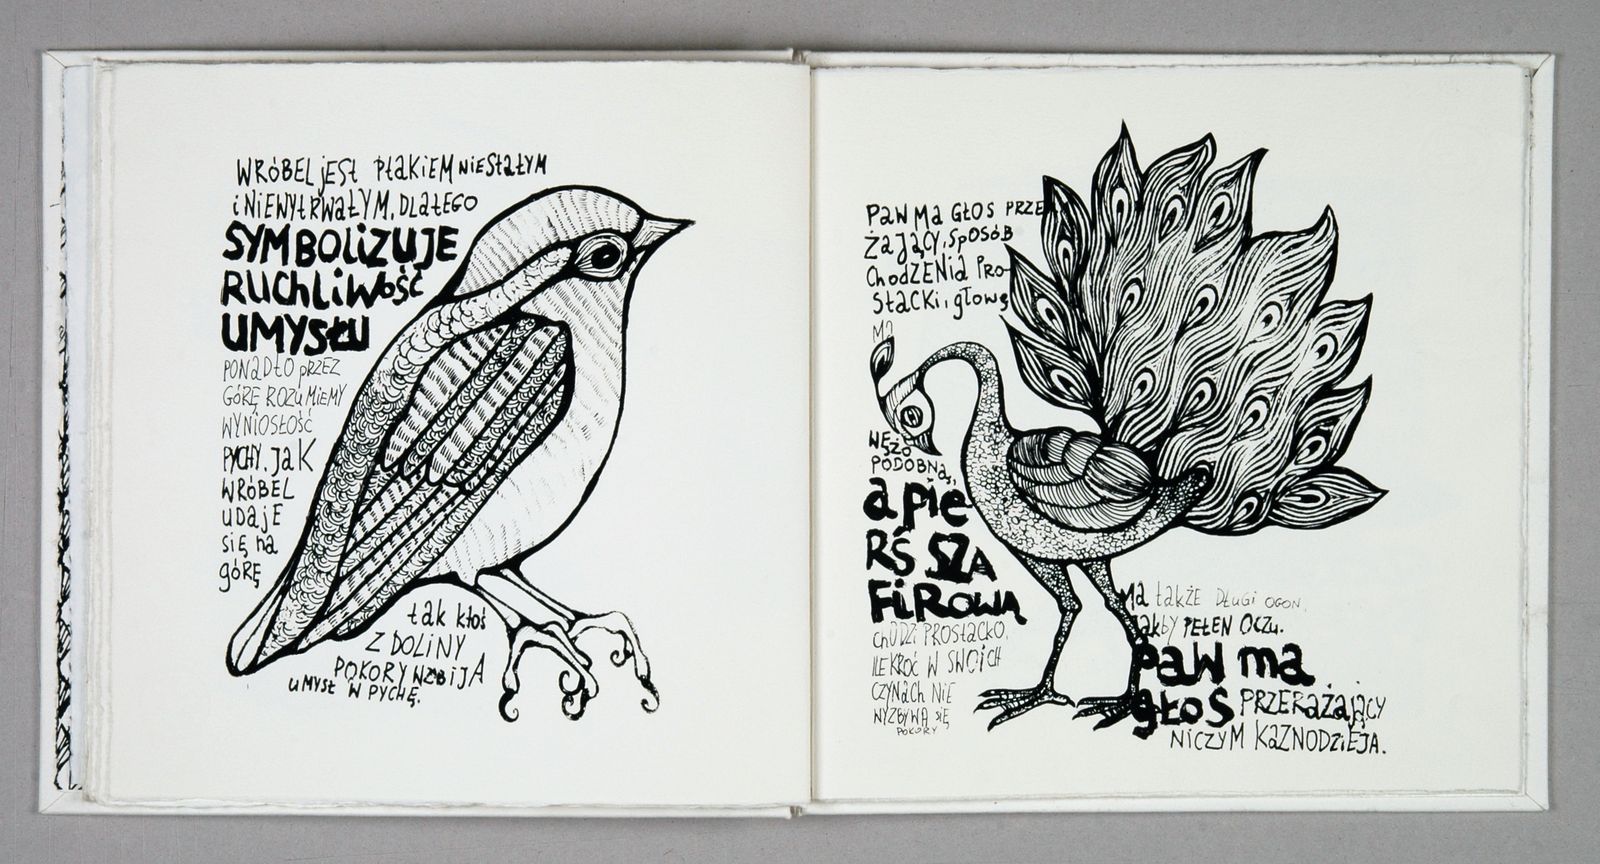 WRÓBEL jESt PtAKiEM NiEStAŁYM
i NiEWYtRWAŁYM, DLAtEGO
SYMBOLiZUJE
RUChLiWOŚĆ
UMYSŁU
PONADtO PRZEZ
GÓRĘ ROZUMiEMY
WYNiOSŁOŚĆ
PYCHY, JAK
WRÓBEL
UDAJE
SiĘ NA
GÓRĘ
tAK KtOŚ
Z DOLiNY
POKORY WZBiJA
UMYSŁ W PYCHĘ.
PAW MA GŁOS PRZE
ŻAJĄCY, SPOSÓB
ChODZENiA PRO-
StACKi, GŁOWĘ
MA
WĘŻO
PODOBNĄ,
A PiE
RŚ SZA
FiROWĄ
ChODZi PROStACKO,
iLEKROĆ W SWOiCh
CZYNACh NiE
WYZBYWA SiĘ
POKORY
MA tAKŻE DŁUGi OGON,
JAKBY PEŁEN OCZU.
PAW MA
GŁOS PRZERAŻAJĄCY
NiCZYM KAZNODZiEJA.